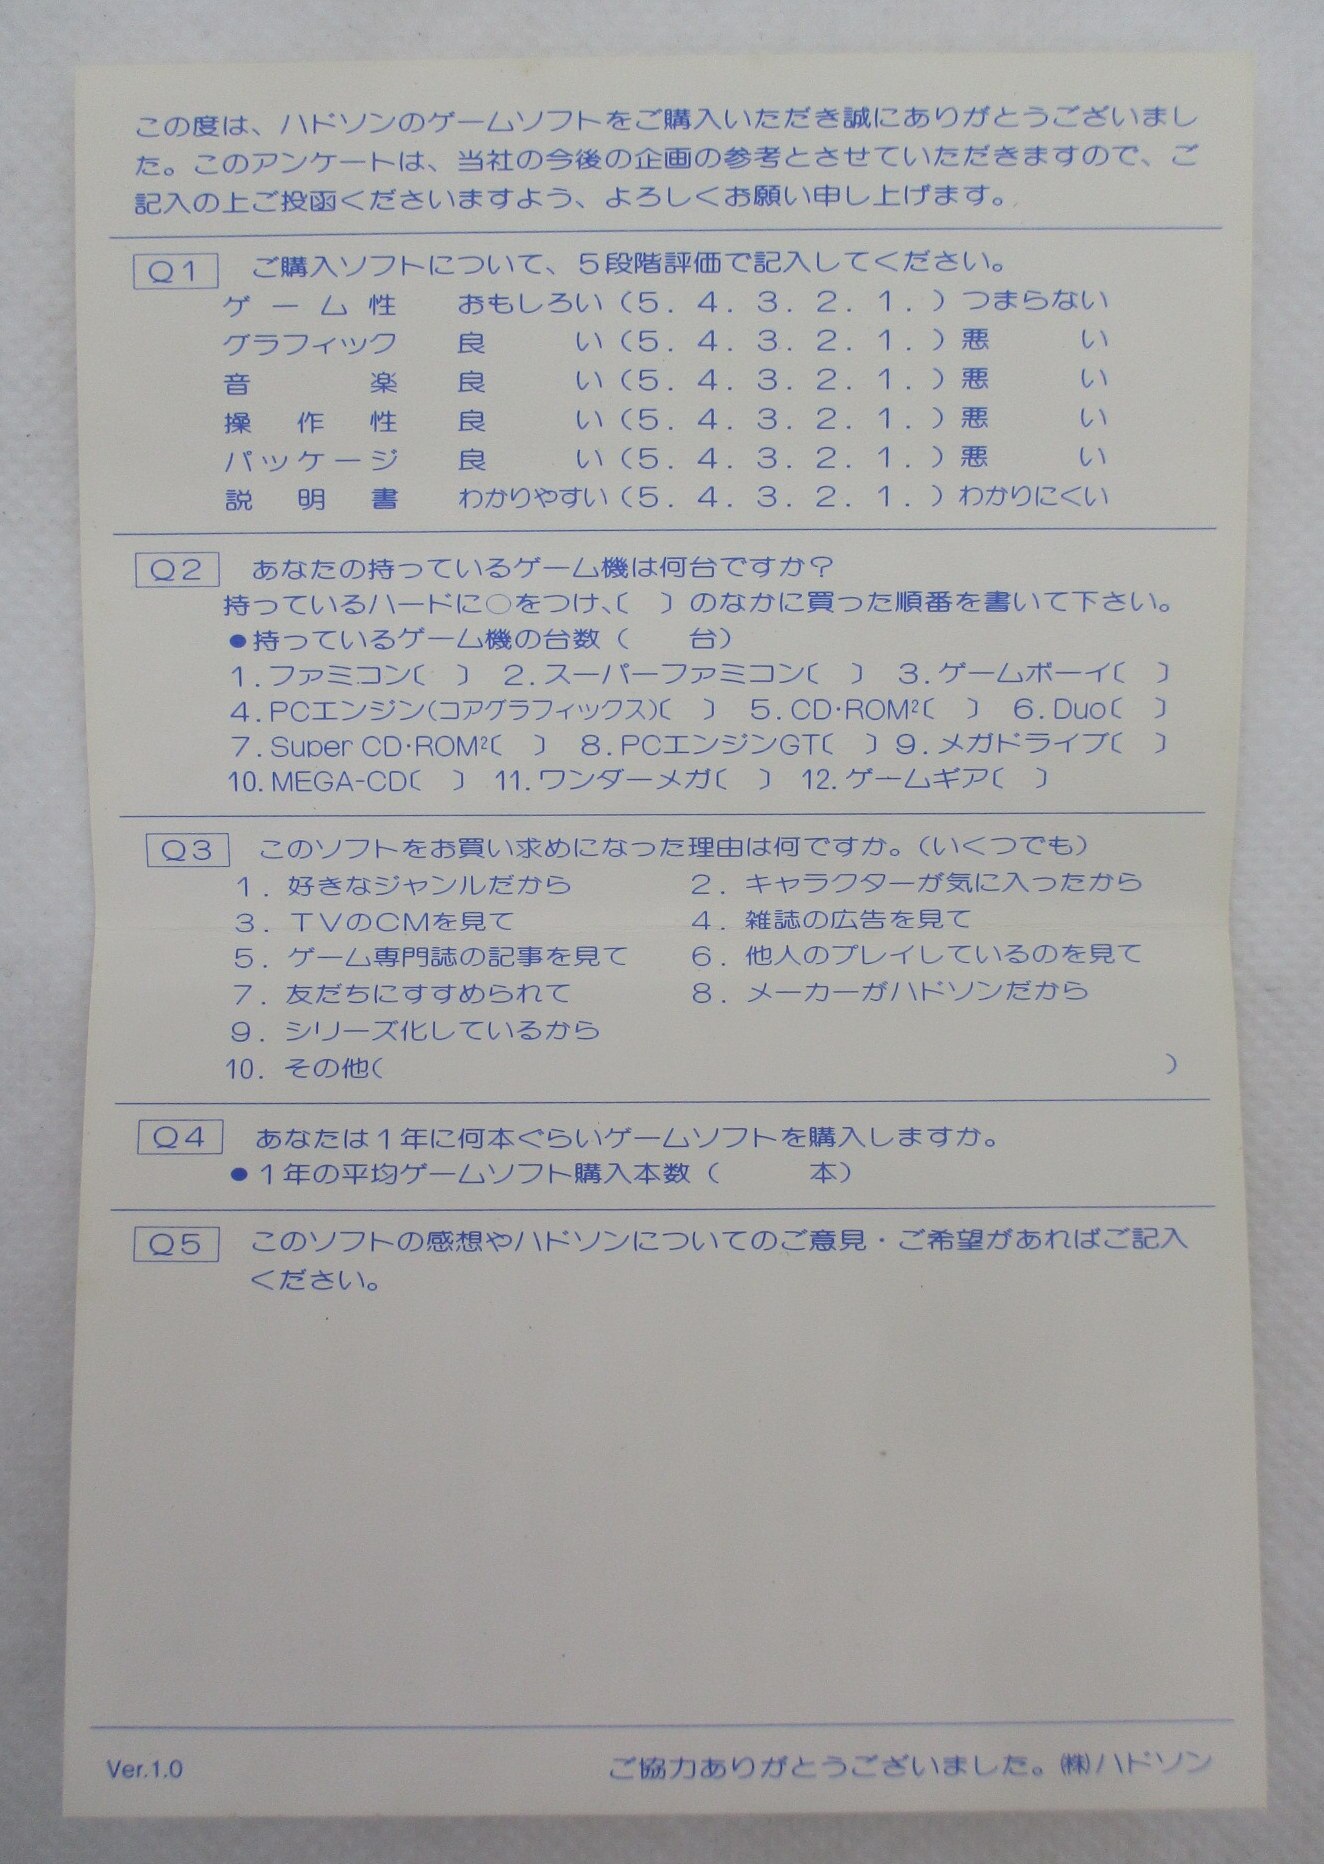 この度は、ハドソンのゲームソフトをご購入いただき誠にありがとうございまし
た。このアンケートは、当社の今後の企画の参考とさせていただきますので、ご
記入の上ご投函くださいますよう、よろしくお願い申し上げます。
Q1 ご購入ソフトについて、5段階評価で記入してください。
ゲーム性 おもしろい（5．4．3．2．1．）つまらない
グラフィック 良い（5．4．3．2．1．）悪い
音楽 良い（5．4．3．2．1．）悪い
操作性 良い（5．4．3．2．1．）悪い
パッケージ 良い（5．4．3．2．1．）悪い
説明書 わかりやすい（5．4．3．2．1．）わかりにくい
Q2 あなたの持っているゲーム機は何台ですか？
持っているハードに○をつけ、〔 〕のなかに買った順番を書いて下さい。
●持っているゲーム機の台数（ 台）
1．ファミコン〔 〕 2．スーパーファミコン〔 〕 3．ゲームボーイ〔 〕
4．PCエンジン（コアグラフィックス）〔 〕 5．CD･ROM²〔 〕 6．Duo〔 〕
7．Super CD･ROM²〔 〕 8．PCエンジンGT〔 〕 9．メガドライブ〔 〕
10．MEGA-CD〔 〕 11．ワンダーメガ〔 〕 12．ゲームギア〔 〕
Q3 このソフトをお買い求めになった理由は何ですか。（いくつでも）
1．好きなジャンルだから 2．キャラクターが気に入ったから
3．TVのCMを見て 4．雑誌の広告を見て
5．ゲーム専門誌の記事を見て 6．他人のプレイしているのを見て
7．友だちにすすめられて 8．メーカーがハドソンだから
9．シリーズ化しているから
10．その他（ ）
Q4 あなたは1年に何本ぐらいゲームソフトを購入しますか。
●1年の平均ゲームソフト購入本数（ 本）
Q5 このソフトの感想やハドソンについてのご意見・ご希望があればご記入
ください。
Ver.1.0 ご協力ありがとうございました。㈱ハドソン